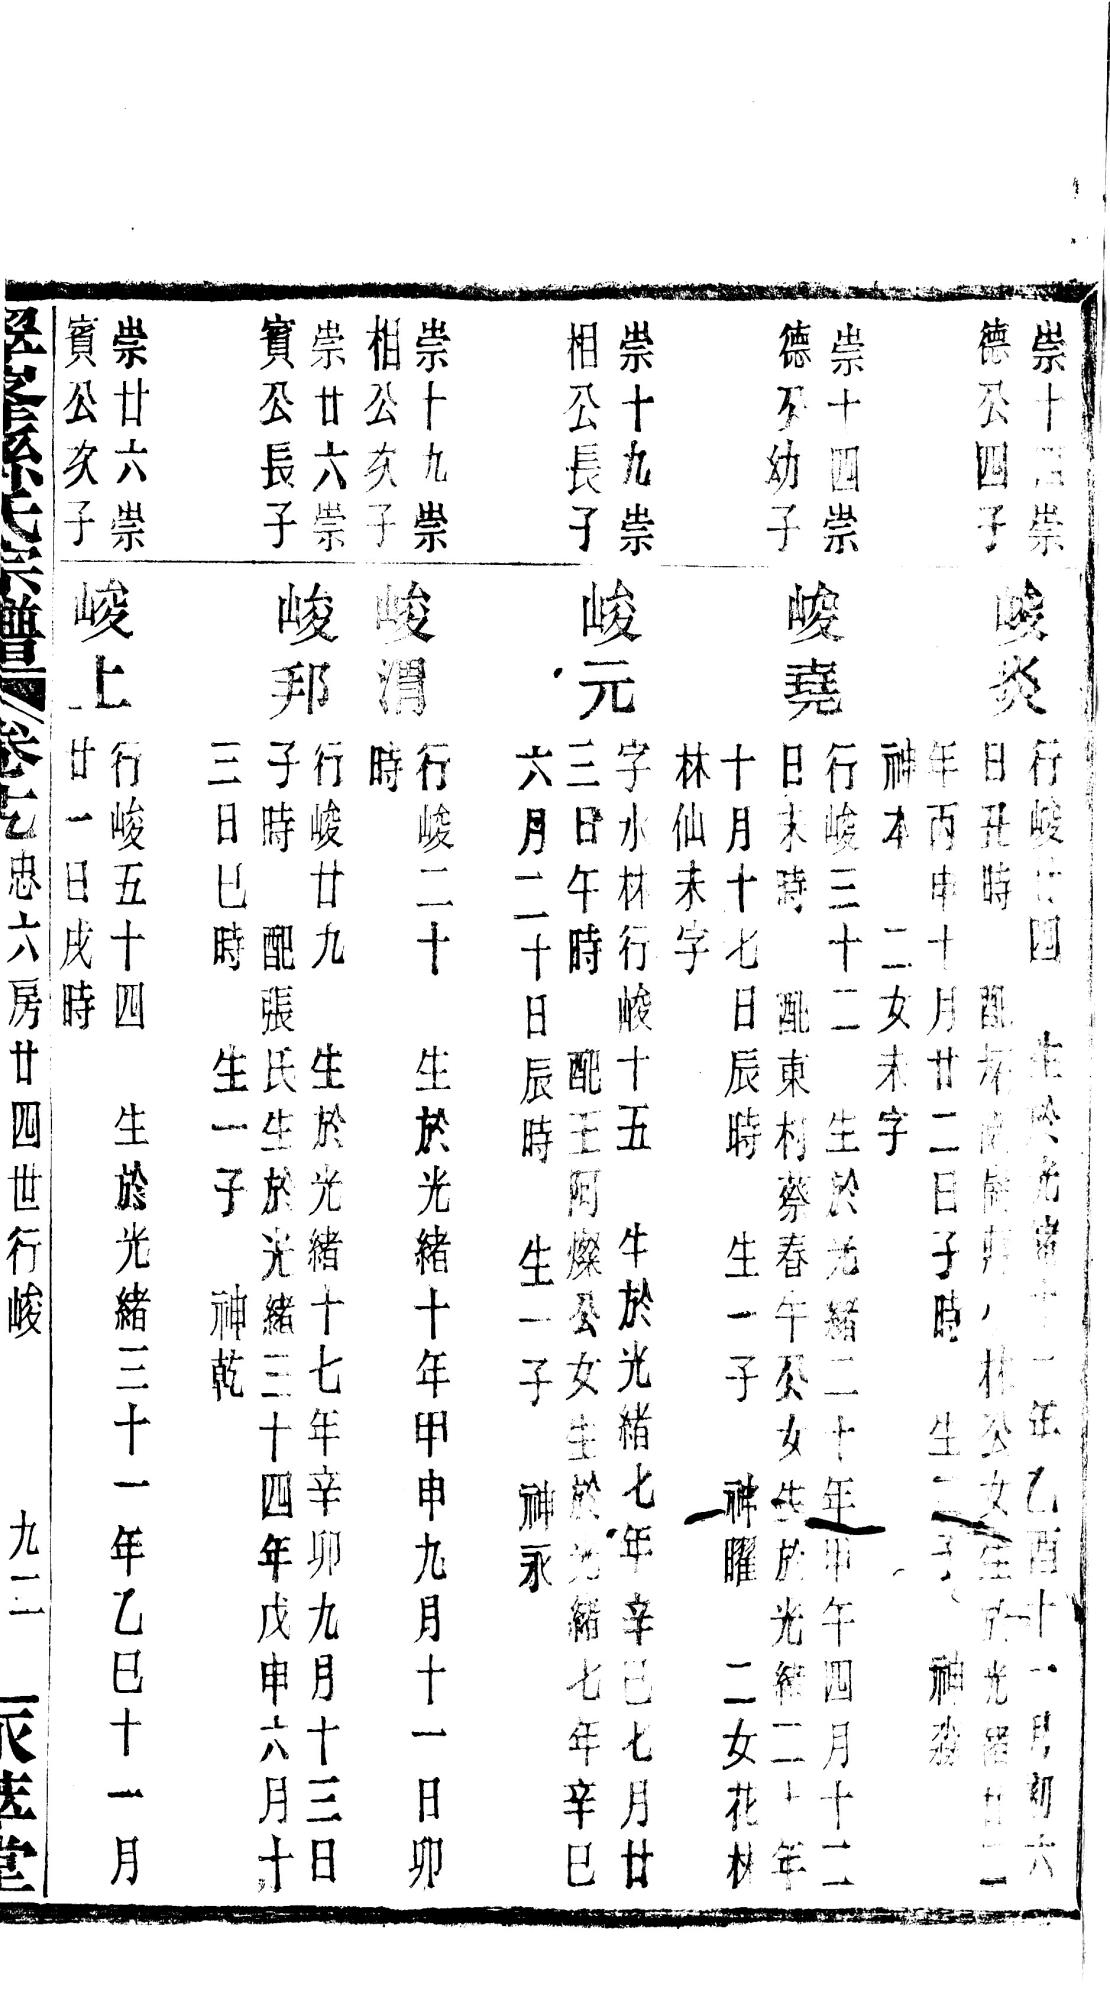 崇十四崇
德公四子
峻炎
行峻廿四 生於光緒十一年乙酉十一月初六
日丑時 配 林公女生於光緒廿二
年丙申十月廿二日子時 生二子 神發
神本 二女未字
崇十四崇
德公幼子
峻堯
行峻三十二 生於光緒二十年甲午四月十二
日未時 配東村蔡春午公女生於光緒二十年
十月十七日辰時 生一子 神曜 二女花林
林仙未字
崇十九崇
相公長子
峻元
字水林行峻十五 生於光緒七年辛巳七月廿
三日午時 配王阿燦公女生於光緒七年辛巳
六月二十日辰時 生一子 神永
崇十九崇
相公次子
峻渭
行峻二十 生於光緒十年甲申九月十一日卯
時
崇廿六崇
賓公長子
峻邦
行峻廿九 生於光緒十七年辛卯九月十三日
子時 配張氏生於光緒三十四年戊申六月十
三日巳時 生一子 神乾
崇廿六崇
賓公次子
峻上
行峻五十四 生於光緒三十一年乙巳十一月
廿一日戌時
孫氏宗譜 卷七 忠六房廿四世行峻 九二 堂